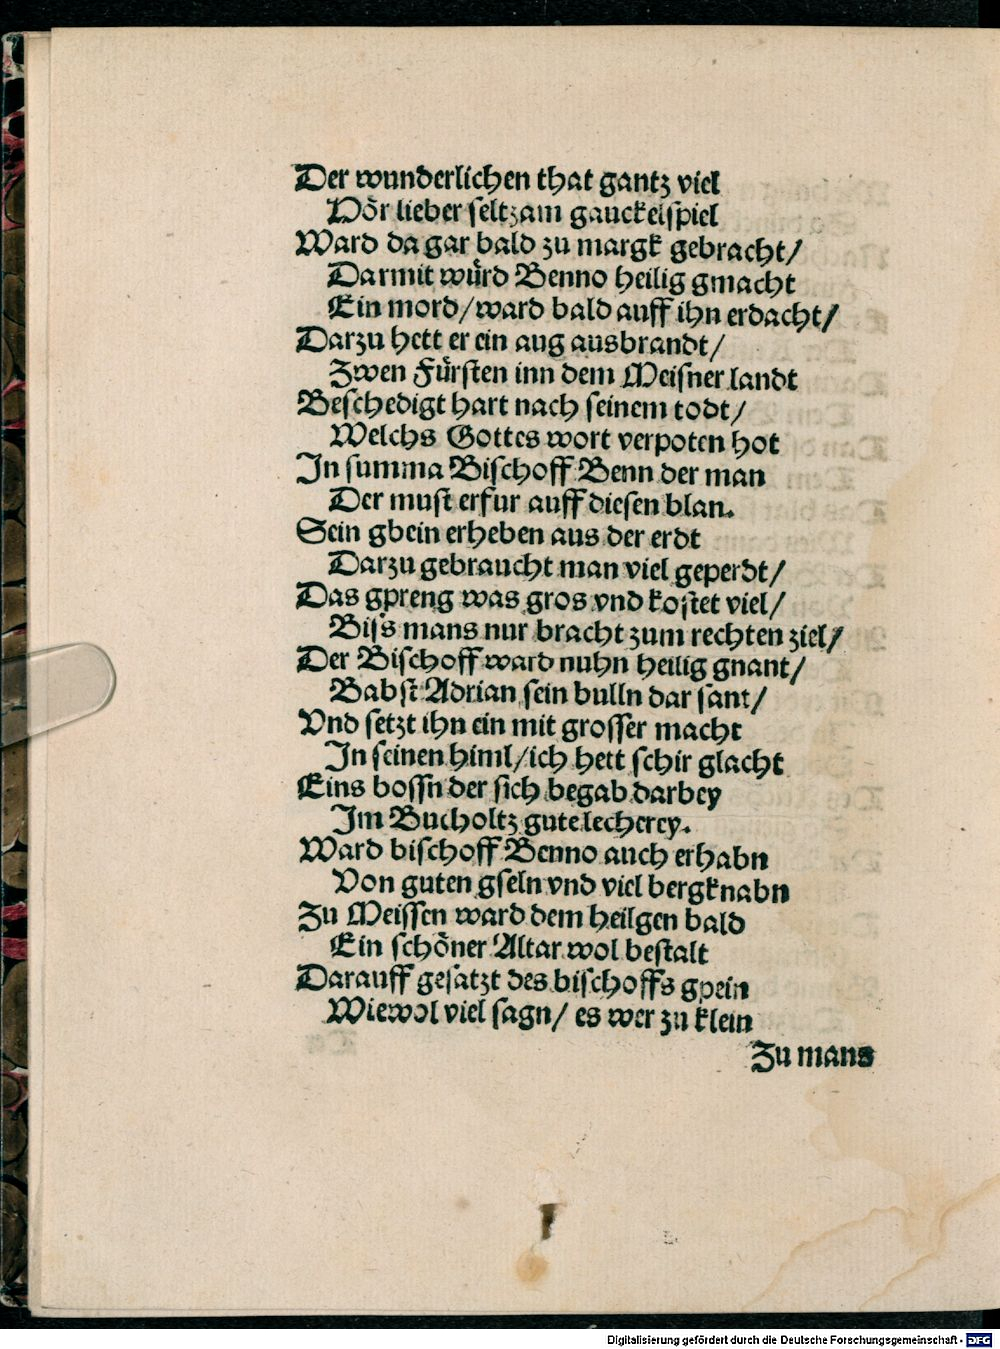 Der wunderlichen that gantz viel
Hör lieber seltzam gauckelspiel
Ward da gar bald zu margk gebracht/
Darmit würd Benno heilig gmacht
Ein mord/ward bald auff ihn erdacht/
Darzu hett er ein aug ausbrandt/
Zwen Fürsten inn dem Meisner landt
Beschedigt hart nach seinem todt/
Welchs Gottes wort verpoten hot
In summa Bischoff Benn der man
Der must erfur auff diesen blan.
Sein gbein erheben aus der erdt
Darzu gebraucht man viel geperdt/
Das gpreng was gros vnd kostet viel/
Biss mans nur bracht zum rechten ziel/
Der Bischoff ward nuhn heilig gnant/
Babst Adrian sein bulln dar sant/
Vnd setzt ihn ein mit grosser macht
In seinen himl/ich hett schir glacht
Eins bossn der sich begab darbey
Im Bucholtz gute lecherey.
Ward bischoff Benno auch erhabn
Von guten gseln vnd viel bergknabn
Zu Meissen ward dem heilgen bald
Ein schöner Altar wol bestalt
Darauff gesatzt des bischoffs gpein
Wiewol viel sagn/ es wer zu klein
Zu mans
Digitalisierung gefördert durch die Deutsche Forschungsgemeinschaft - DFG